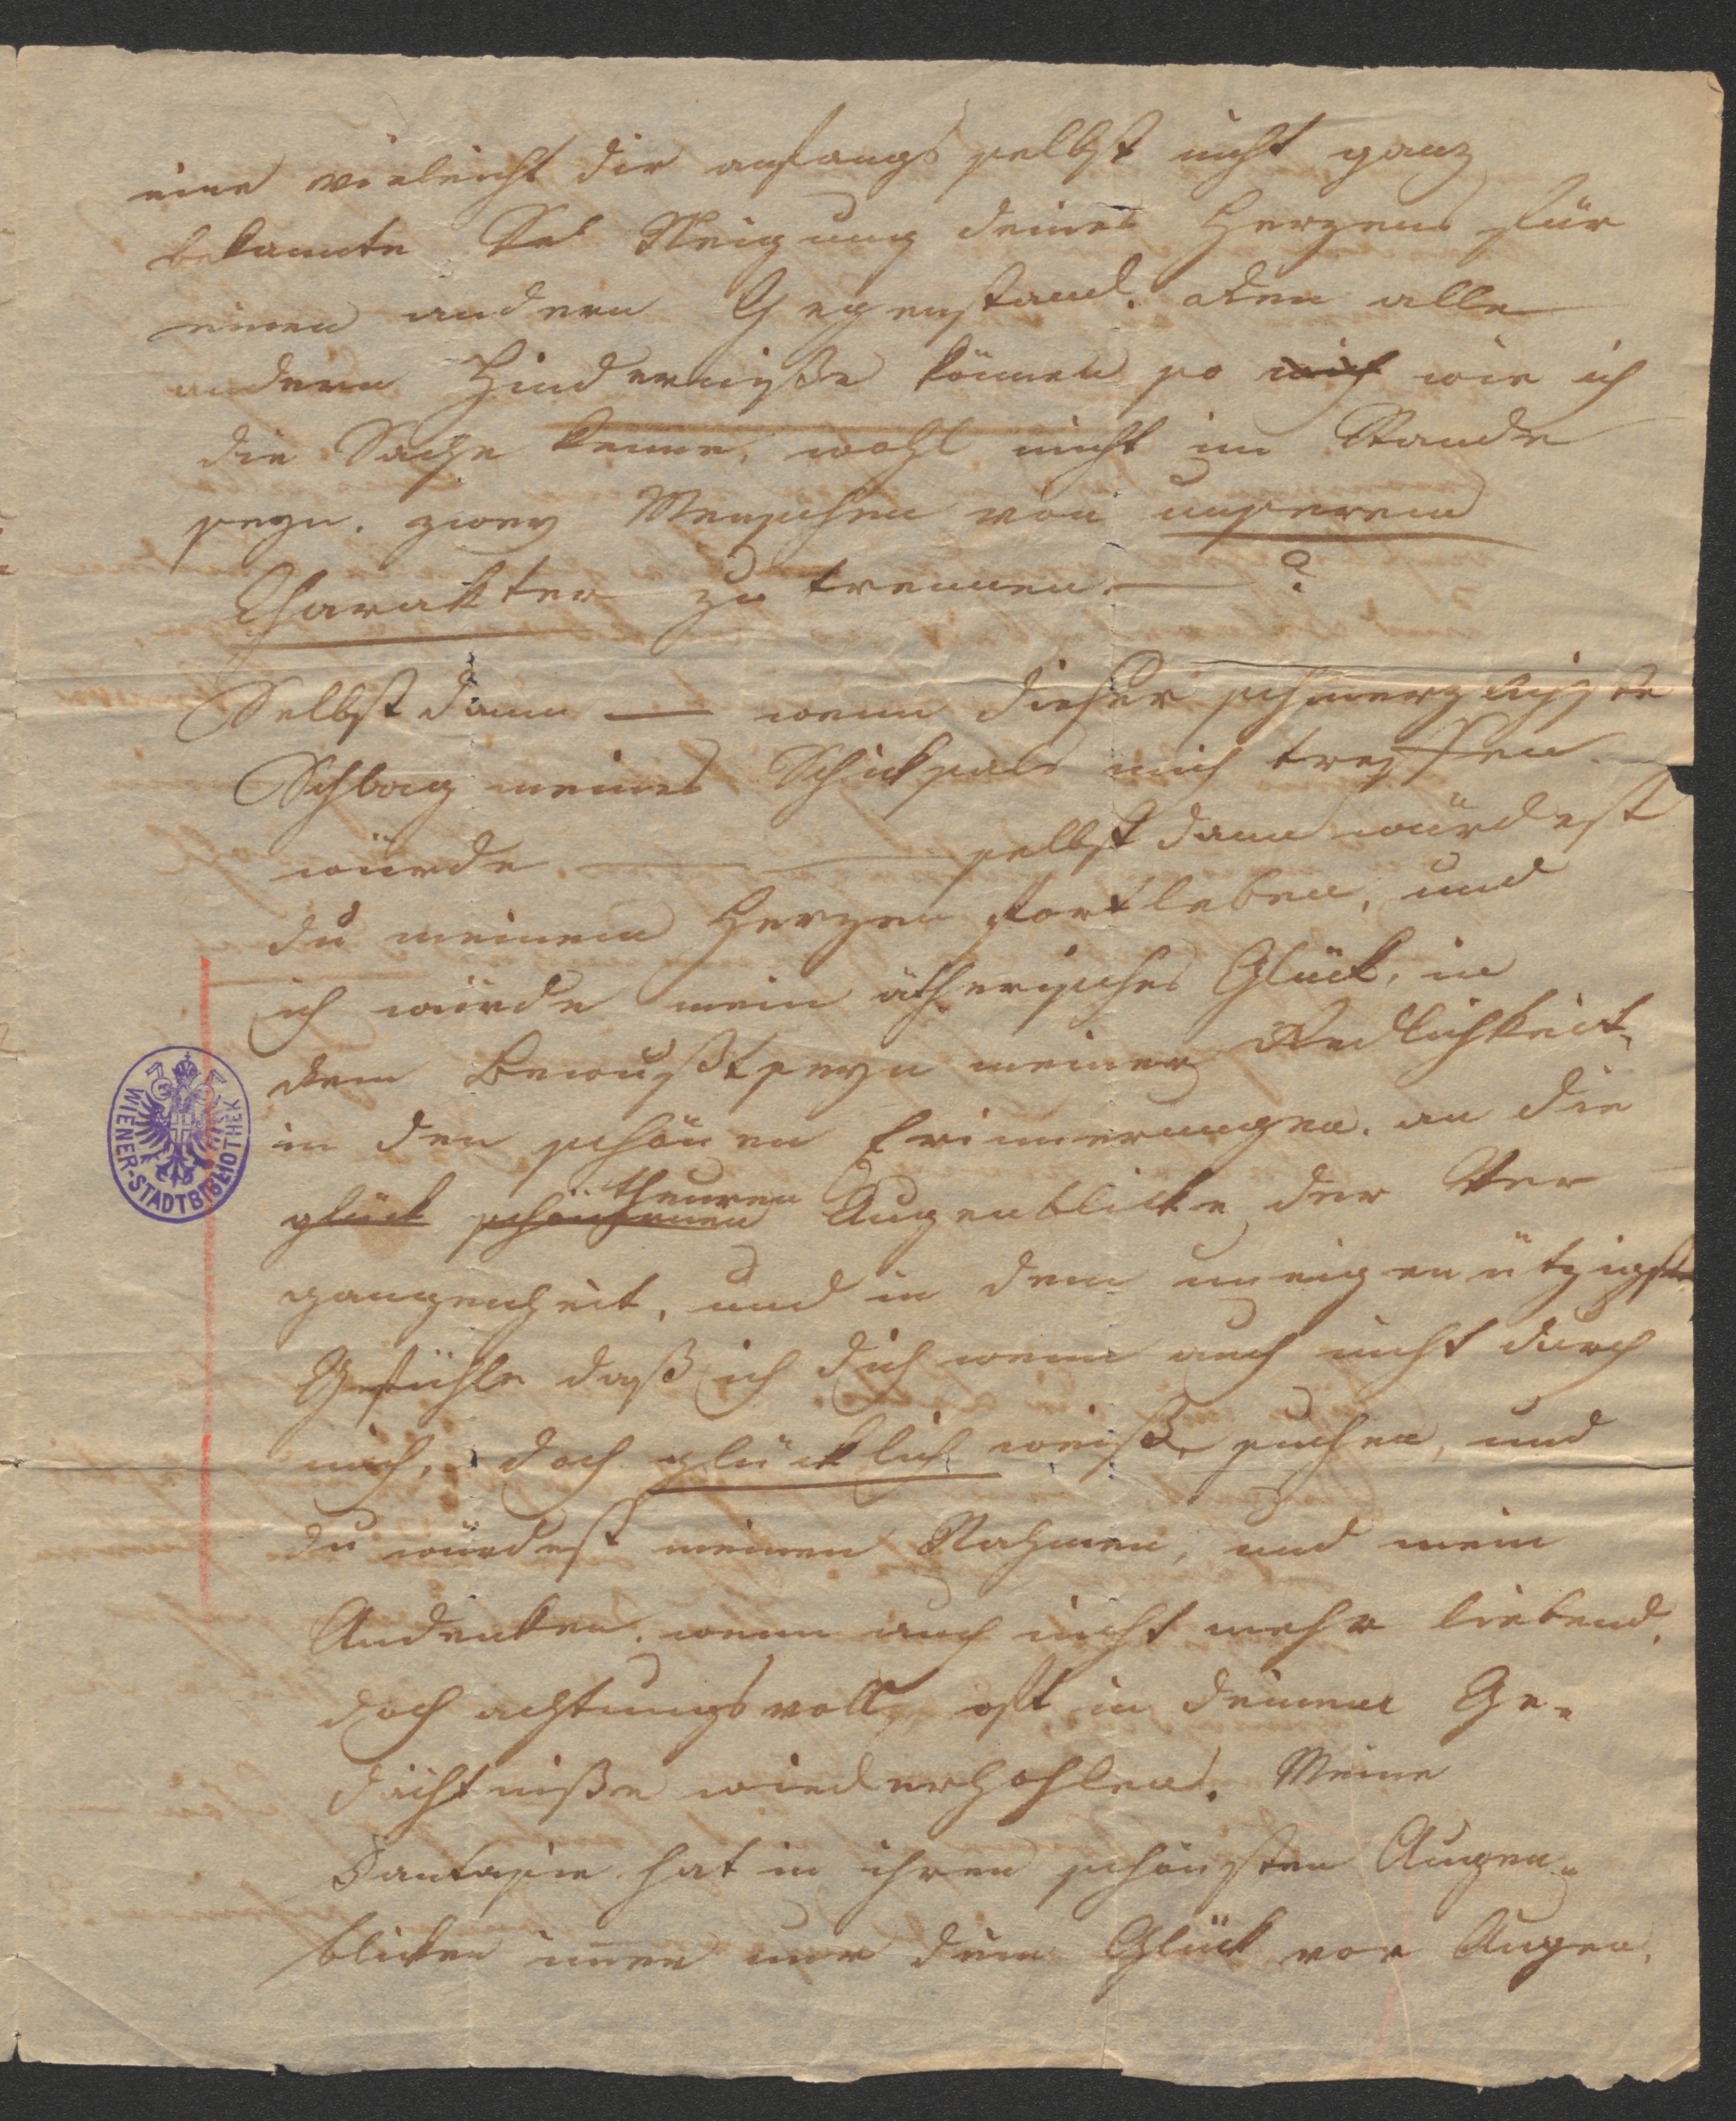 eine vieleicht dir anfangs selbst nicht ganz
bekannte Neigung deines Herzens für
einen andern Gegenstand. den alle
andern Hinderniße können so mich wie ich
die Sache kenne, wohl nicht im Stande
seyn. zwey Menschen von unserem
Charakter zu trennen. — ?
Selbst dann — wenn dieser schmerzlichste
Schlag meines Schicksals mich treffen
würde — — selbst dann würdest
du meinem Herzen fortleben, und
ich würde mein ätherisches Glück, in
dem Bewußtseyn meiner Redlichkeit,
in den schönen Erinnerungen. an die
theuren
glück schön Augenblicke der Ver
gangenheit, und in dem uneigenützigsten
Gefühle daß ich dich wenn auch nicht durch
mich, doch glücklich weiß, suchen, und
du würdest meinen Nahmen, und mein
Andenken. wenn auch nicht mehr liebend,
doch achtungsvoll, oft in deinem Ge-
dächtniße wiederhohlen. Meine
Fantasie hat in ihren schönsten Augen-
blicken immer nur dein Glück vor Augen.
WIENER-STADTBIBLIOTHEK